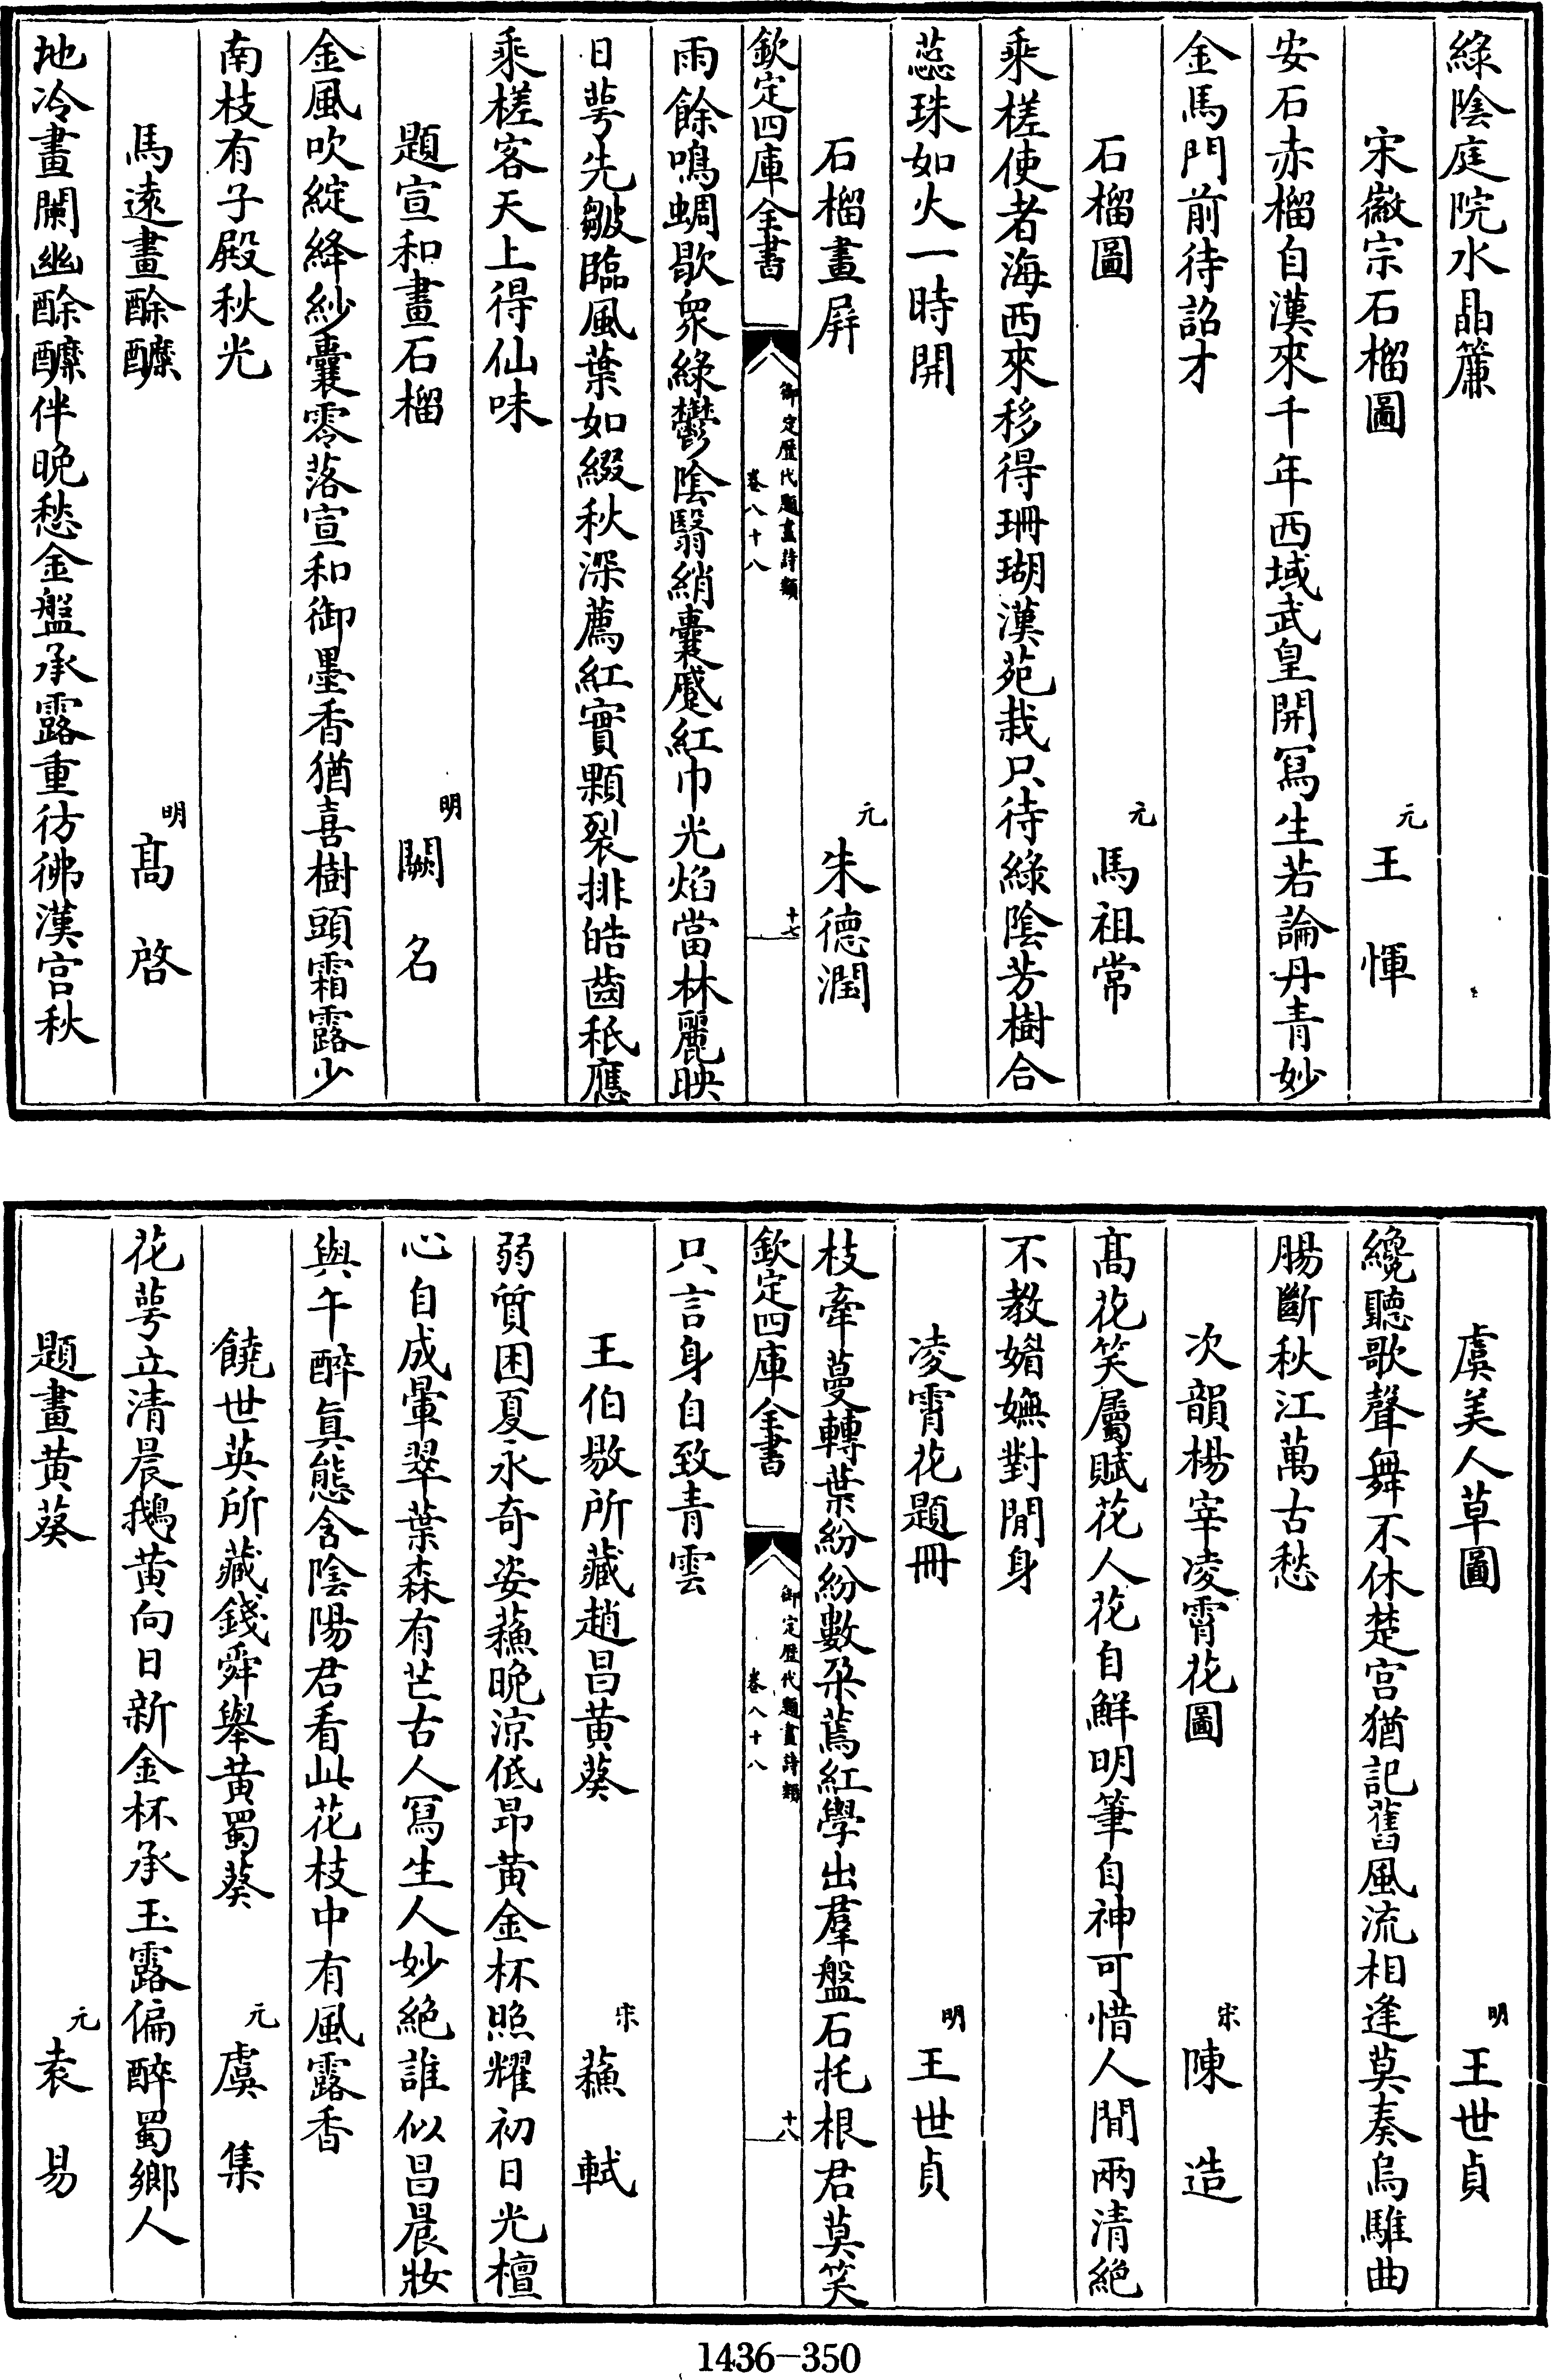 綠陰庭院水晶簾
宋徽宗石榴圖 元 王惲
安石赤榴自漢來千年西域武皇開寫生若論丹青妙
金馬門前待詔才
石榴圖 元 馬祖常
乘槎使者海西來移得珊瑚漢苑栽只待綠陰芳樹合
蕊珠如火一時開
石榴畫屏 元 朱德潤
欽定四庫全書 御定歷代題畫詩類 卷八十八 十七
雨餘鳴蜩歇眾綠鬱陰翳綃囊蹙紅巾光焰當林麗映
日萼先皺臨風葉如綴秋深薦紅實顆裂排皓齒秪應
乘槎客天上得仙味
題宣和畫石榴 明 闕名
金風吹綻絳紗囊零落宣和御墨香猶喜樹頭霜露少
南枝有子殿秋光
馬遠畫酴醾 明 髙啓
地冷畫闌幽酴醾伴晚愁金盤承露重彷彿漢宫秋
虞美人草圖 明 王世貞
纔聽歌聲舞不休楚宫猶記舊風流相逢莫奏烏騅曲
腸斷秋江萬古愁
次韻楊宰凌霄花圖 宋 陳造
髙花笑屬賦花人花自鮮明筆自神可惜人間兩清絶
不教媚嫵對閒身
凌霄花題冊 明 王世貞
枝牽蔓轉葉紛紛數朶蔫紅學出羣盤石托根君莫笑
欽定四庫全書 御定歷代題畫詩類 卷八十八 十八
只言身自致青雲
王伯敭所藏趙昌黄葵 宋 蘓軾
弱質困夏永奇姿蘓晚涼低昂黄金杯照耀初日光檀
心自成暈翠葉森有芒古人寫生人妙絶誰似昌晨妝
與午醉真態含陰陽君看此花枝中有風露香
饒世英所藏錢舜舉黄蜀葵 元 虞集
花萼立清晨鵝黄向日新金杯承玉露偏醉蜀鄉人
題畫黄葵 元 袁易
1436-350